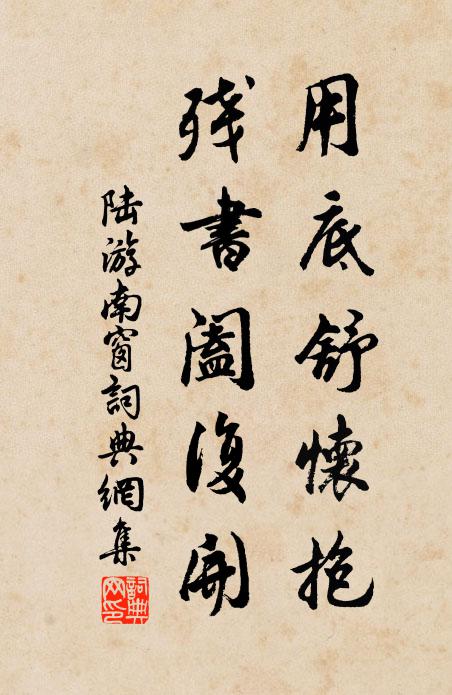 用底舒懷抱
残書闔復開
陆游南窗詞典網集
詞典
网印